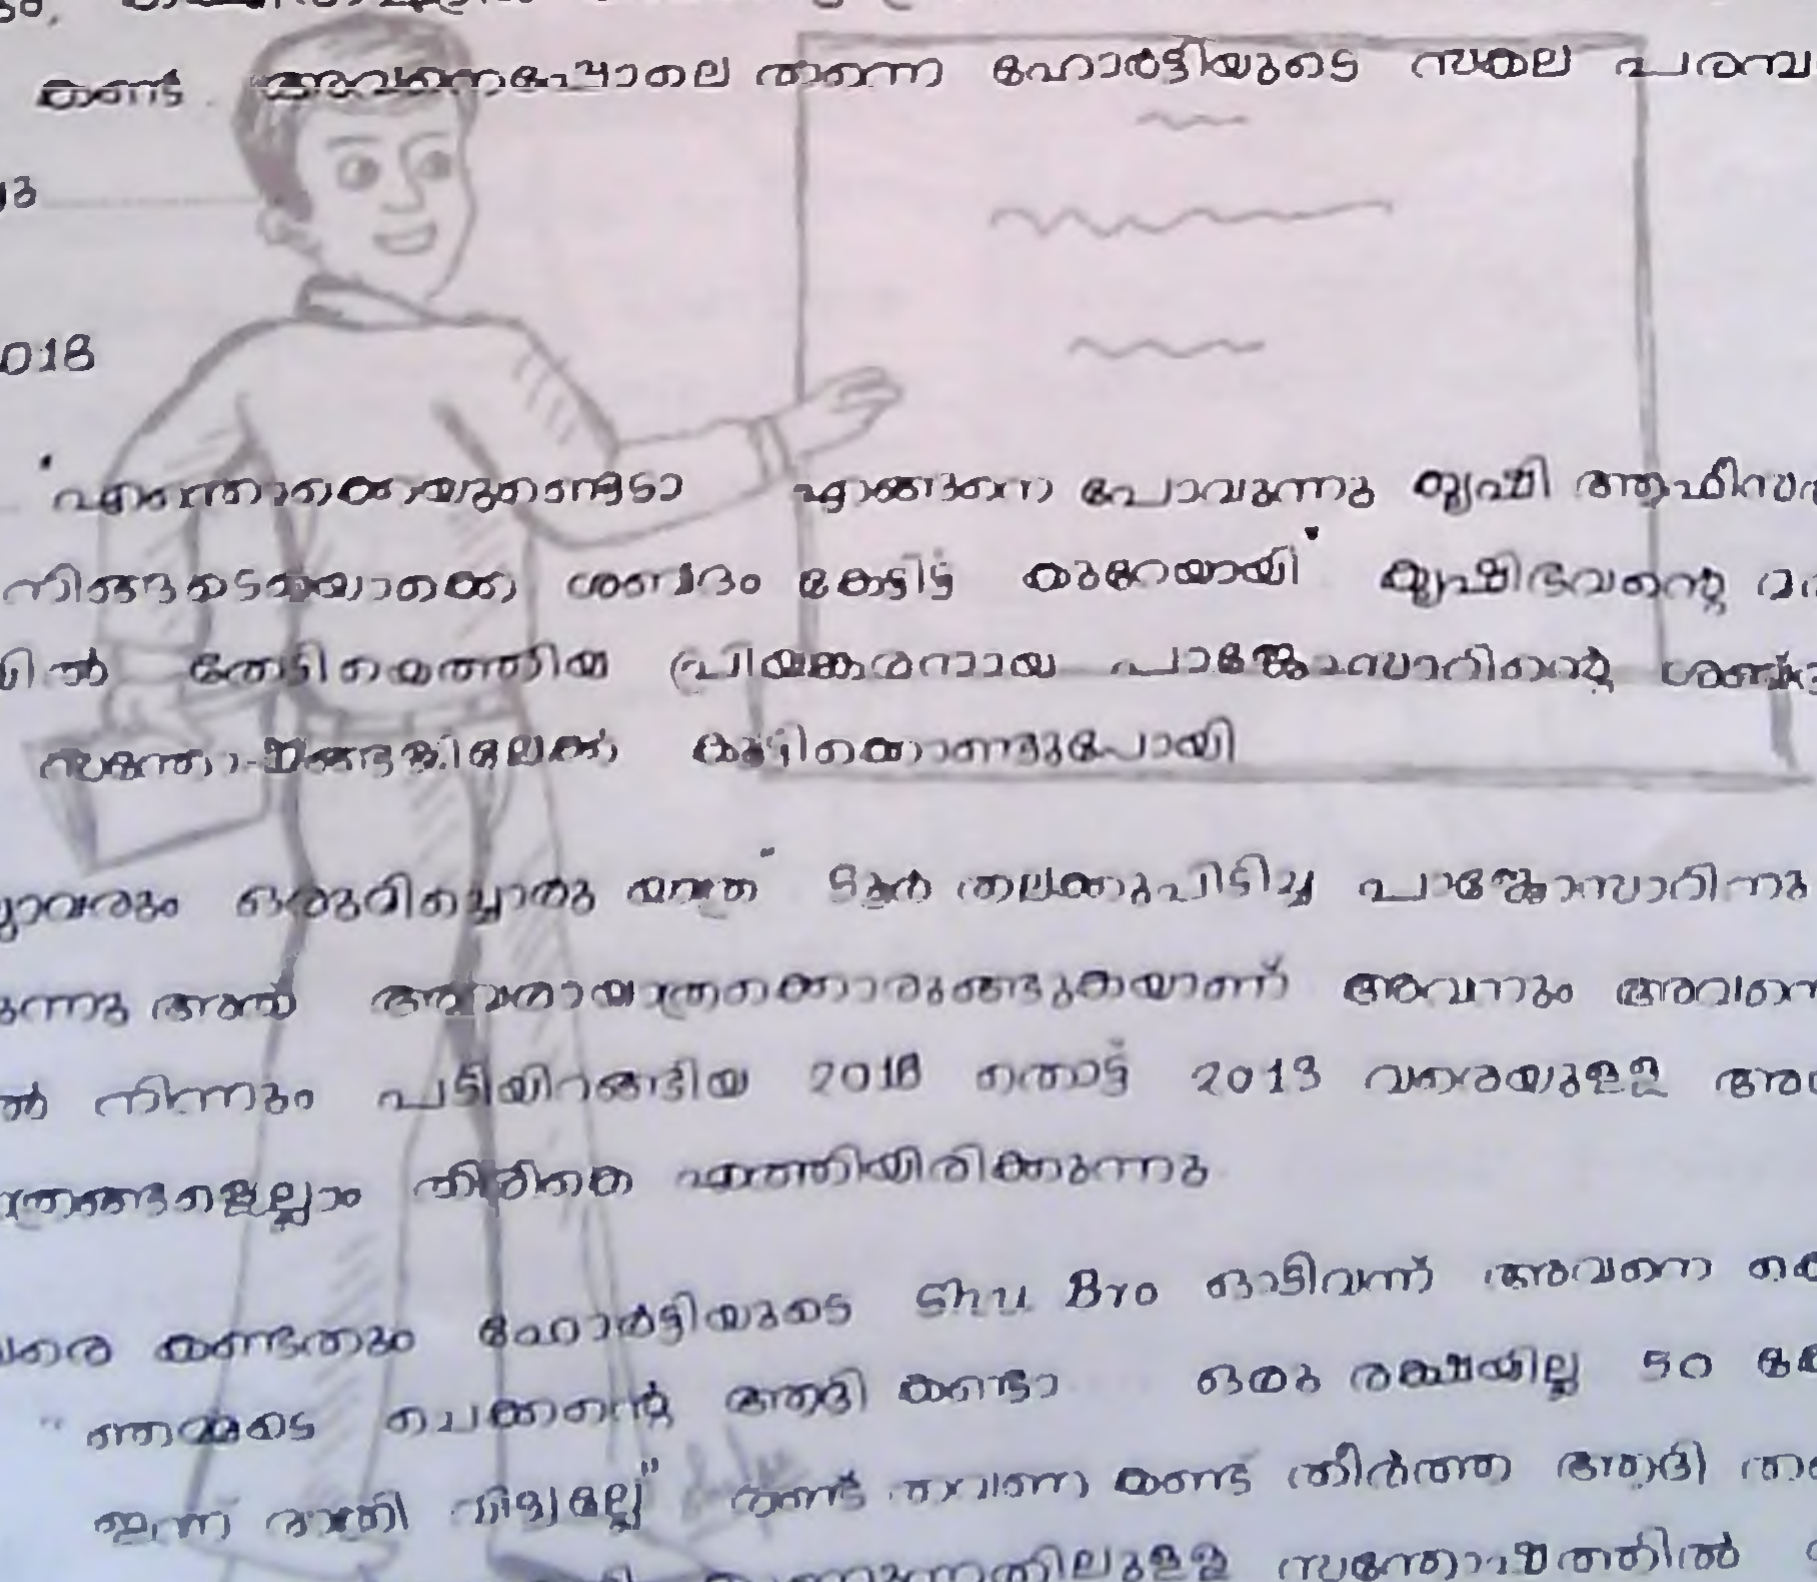 കണ്ട് അവനെപ്പോലെ തന്നെ ഹോർട്ടിയുടെ സകല പരമ്പ
018
"എന്തൊക്കെയുണ്ടെടാ എങ്ങനെ പോവുന്നു കൃഷി ആഫീസർ
നിങ്ങടെയൊക്കെ ശബ്ദം കേട്ടിട്ട് കുറേയായി" കൃഷിഭവന്റെ
ിൽ തേടിയെത്തിയ പ്രിയങ്കരനായ പാങ്ങോസാറിന്റെ ശബ്ദ
സന്തോഷങ്ങളിലേക്കു കൂട്ടിക്കൊണ്ടുപോയി
ല്ലാവരും ഒരുമിച്ചൊരു യാത്ര ടൂർ തലക്കുപിടിച്ച പാങ്ങോസാറിനു
ുന്നു അത് അവരായാത്രക്കൊരുങ്ങുകയാണ് അവനും അവനെ
ൽ നിന്നും പടിയിറങ്ങിയ 2018 തൊട്ട് 2013 വരെയുള്ള
ത്രങ്ങളെല്ലാം തിരികെ എത്തിയിരിക്കുന്നു
വരെ കണ്ടതും ഹോർട്ടിയുടെ Shu Bro ഓടിവന്ന് അവനെ കെ
"ഞമ്മടെ ചെക്കന്റെ ആദി കണ്ടാ ഒരു രക്ഷയില്ല 50
ഇന്ന് രാത്രി വിളിക്കല്ല്" രണ്ട് തവണ കണ്ട് തീർത്ത ആദി
ുന്നതിലുള്ള സന്തോഷത്തിൽ